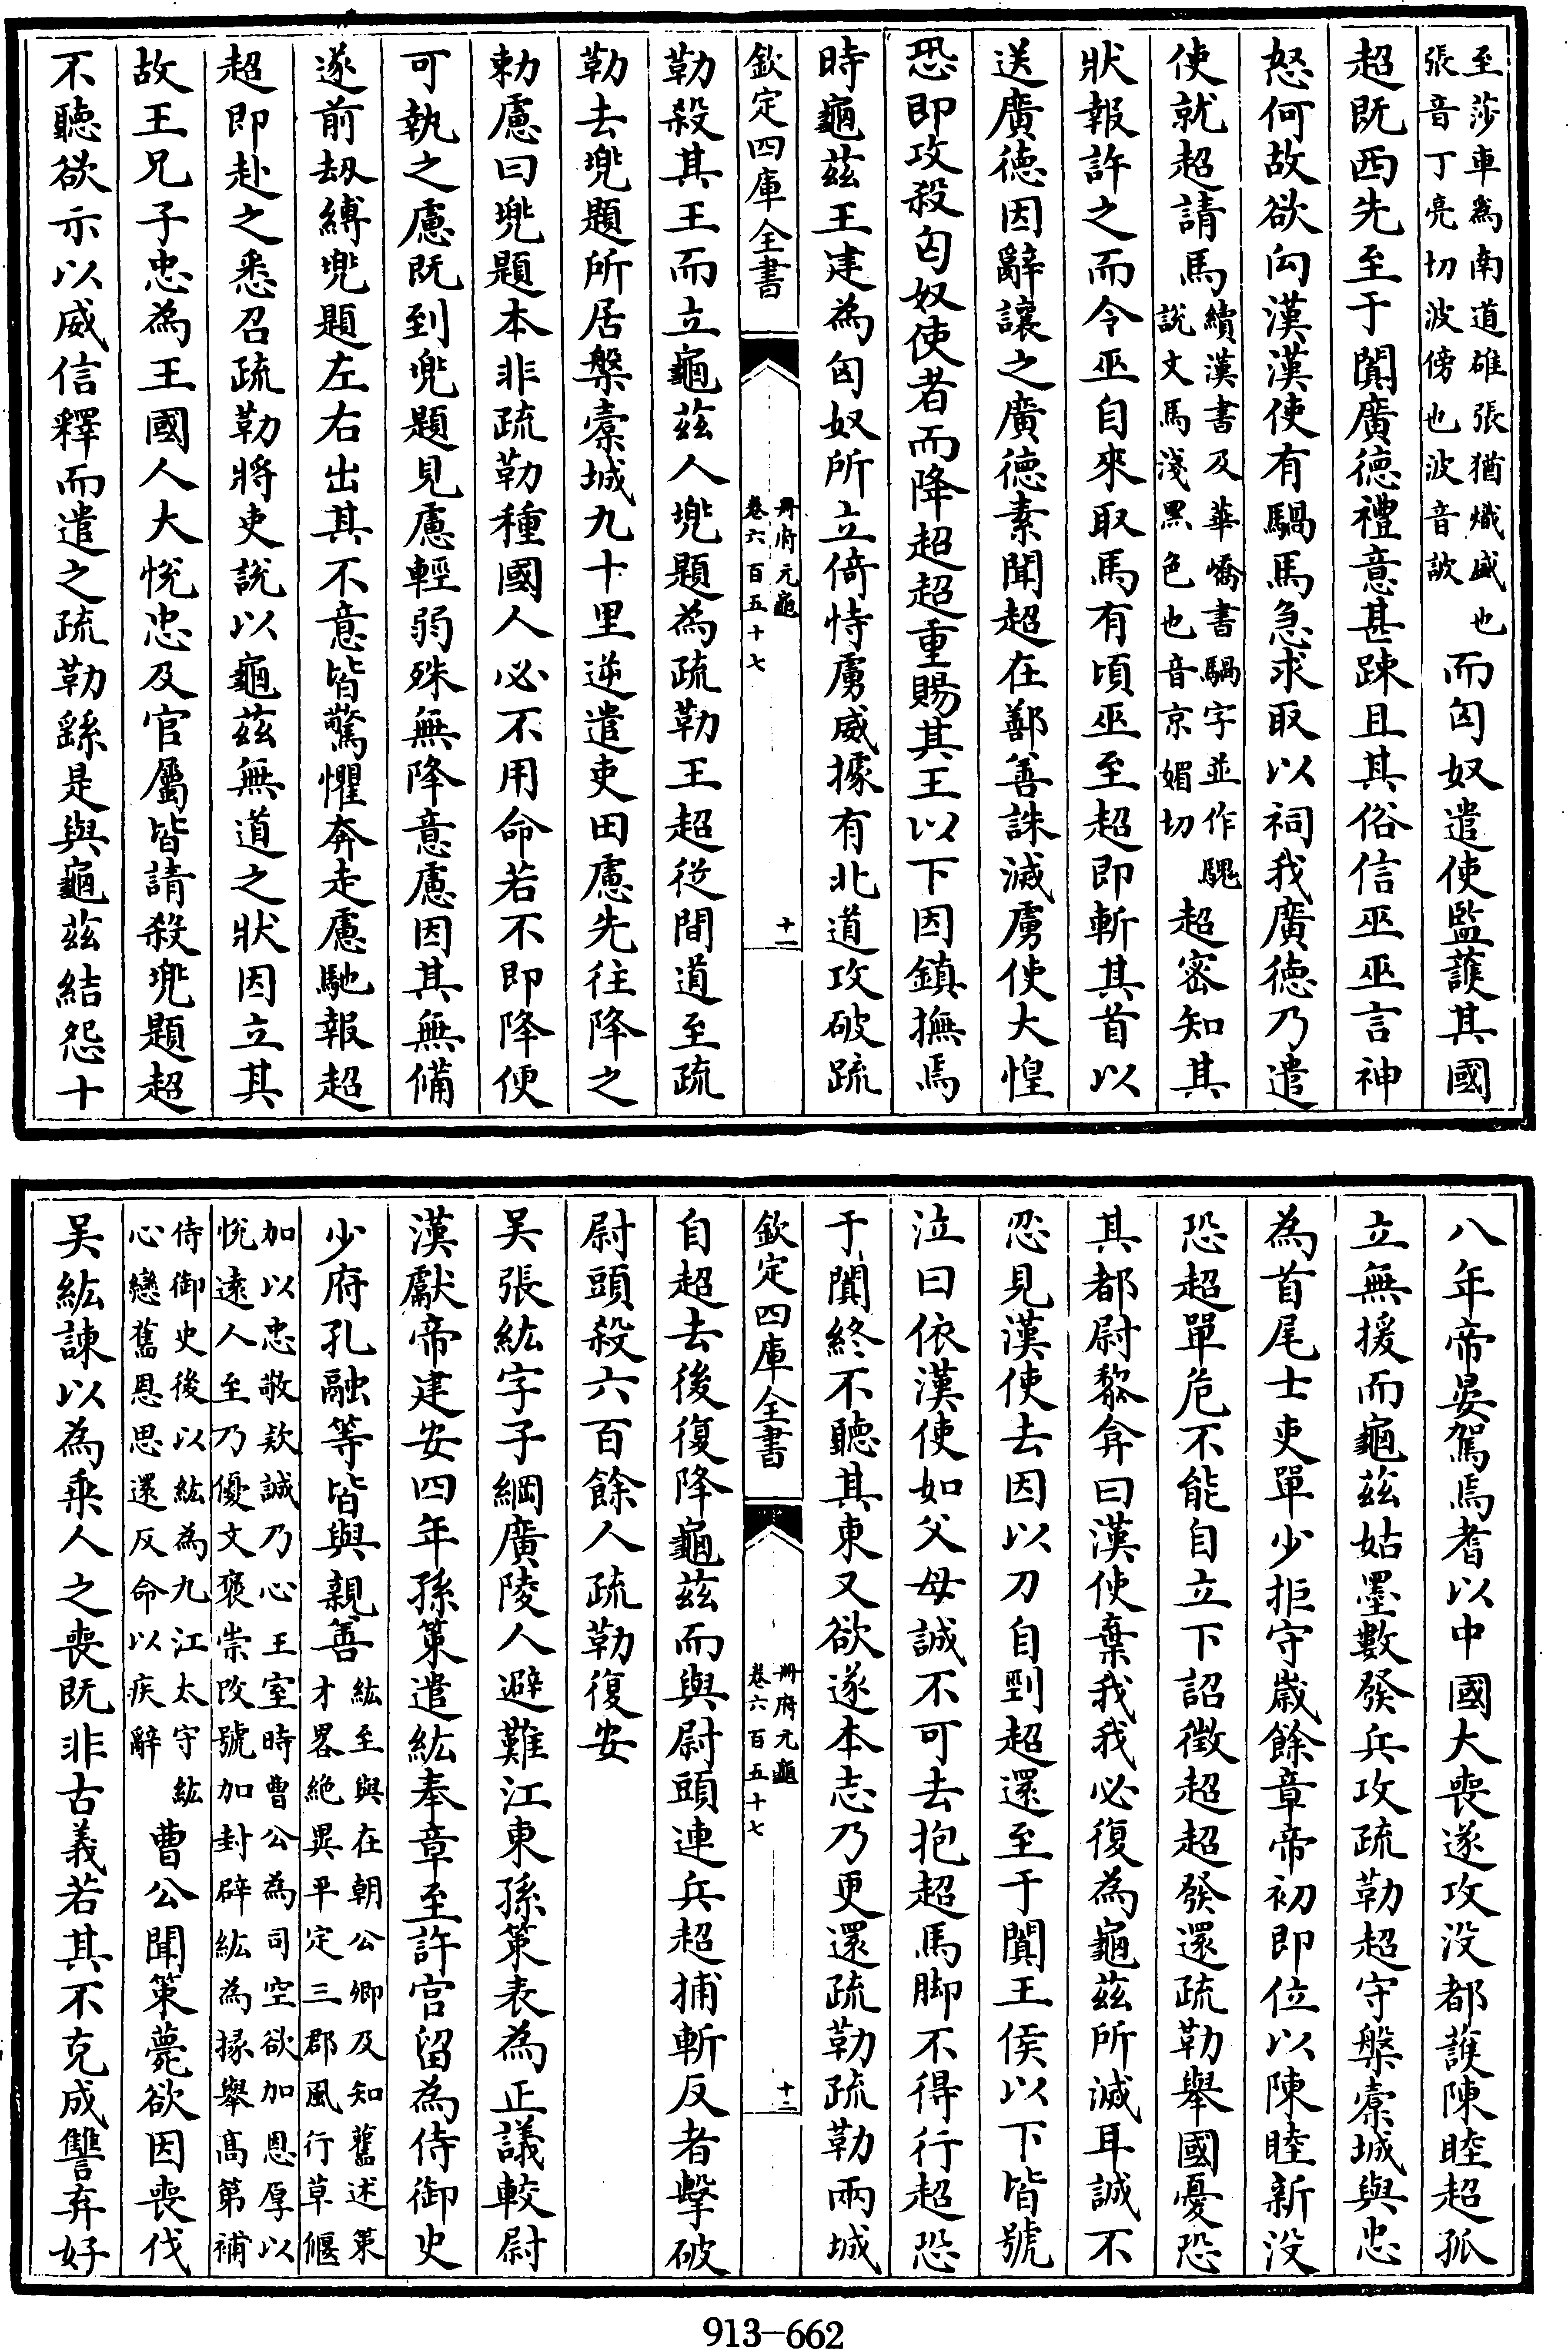 至莎車為南道雄張猶熾盛也
張音丁亮切波傍也波音詖
而匈奴遣使監護其國
超既西先至于闐廣德禮意甚踈且其俗信巫巫言神
怒何故欲向漢漢使有騧馬急求取以祠我廣德乃遣
使就超請馬
續漢書及華嶠書騧字並作騩
說文馬淺黑色也音京媚切
超密知其
狀報許之而令巫自來取馬有頃巫至超即斬其首以
送廣德因辭讓之廣德素聞超在鄯善誅滅虜使大惶
恐即攻殺匈奴使者而降超超重賜其王以下因鎮撫焉
時龜茲王建為匈奴所立倚恃虜威據有北道攻破疏
欽定四庫全書
冊府元龜
卷六百五十七
十一
勒殺其王而立龜茲人兠題為疏勒王超從間道至疏
勒去兠題所居槃橐城九十里逆遣吏田慮先往降之
勅慮曰兠題本非疏勒種國人必不用命若不即降便
可執之慮既到兠題見慮輕弱殊無降意慮因其無備
遂前刼縛兠題左右出其不意皆驚懼奔走慮馳報超
超即赴之悉召疏勒將吏說以龜茲無道之狀因立其
故王兄子忠為王國人大悅忠及官屬皆請殺兠題超
不聽欲示以威信釋而遣之疏勒繇是與龜茲結怨十
八年帝晏駕焉耆以中國大喪遂攻沒都護陳睦超孤
立無援而龜茲姑墨數發兵攻疏勒超守槃橐城與忠
為首尾士吏單少拒守嵗餘章帝初即位以陳睦新沒
恐超單危不能自立下詔徵超超發還疏勒舉國憂恐
其都尉黎弇曰漢使棄我我必復為龜茲所滅耳誠不
忍見漢使去因以刀自剄超還至于闐王侯以下皆號
泣曰依漢使如父母誠不可去抱超馬脚不得行超恐
于闐終不聽其東又欲遂本志乃更還疏勒疏勒兩城
欽定四庫全書
冊府元龜
卷六百五十七
十二
自超去後復降龜茲而與尉頭連兵超捕斬反者擊破
尉頭殺六百餘人疏勒復安
吳張紘字子綱廣陵人避難江東孫策表為正議較尉
漢獻帝建安四年孫策遣紘奉章至許宮留為侍御史
少府孔融等皆與親善
紘至與在朝公卿及知舊述策
才畧絶異平定三郡風行草偃
加以忠敬欵誠乃心王室時曹公為司空欲加恩厚以
悅遠人至乃優文褒崇改號加封辟紘為掾舉高第補
侍御史後以紘為九江太守紘
心戀舊恩思還反命以疾辭
曹公聞策薨欲因喪伐
吳紘諫以為乗人之喪既非古義若其不克成讐弃好
913-662